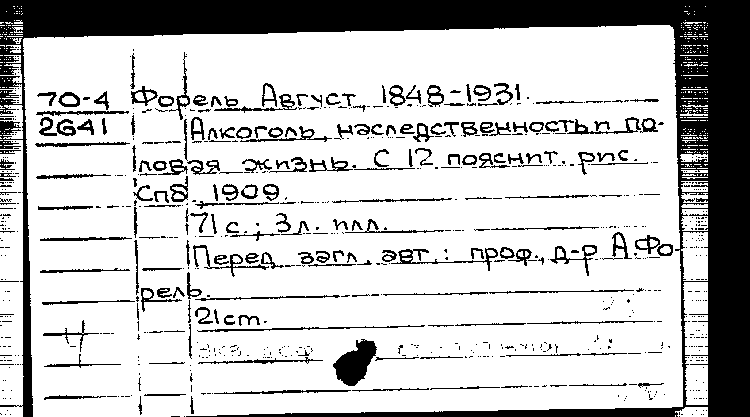 70-4 Форель, Август, 1848-1931.
2641 Алкоголь, наследственность и по-
ловая жизнь. С 12 пояснит. рис.
Спб., 1909.
71 с.; 3 л. илл.
Перед загл. авт.: проф., д-р А.Фо-
рель.
21 cm.
Ч